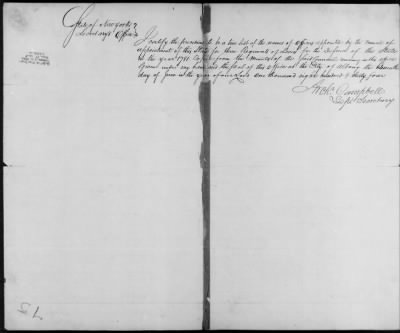 State of New York
Secretary's Office
I certify the foregoing to be a true list of the names of officers appointed by the Council of
appointment of this State for three Regiments of Levies for the defence of the State
in the year 1781. Copied from the Minutes of the said Council remaining in this office
Given under my hand and the seal of this office at the City of Albany the
day of June in the year of our Lord one thousand eight hundred & thirty four
Arch. Campbell
Dep. Secretary
75